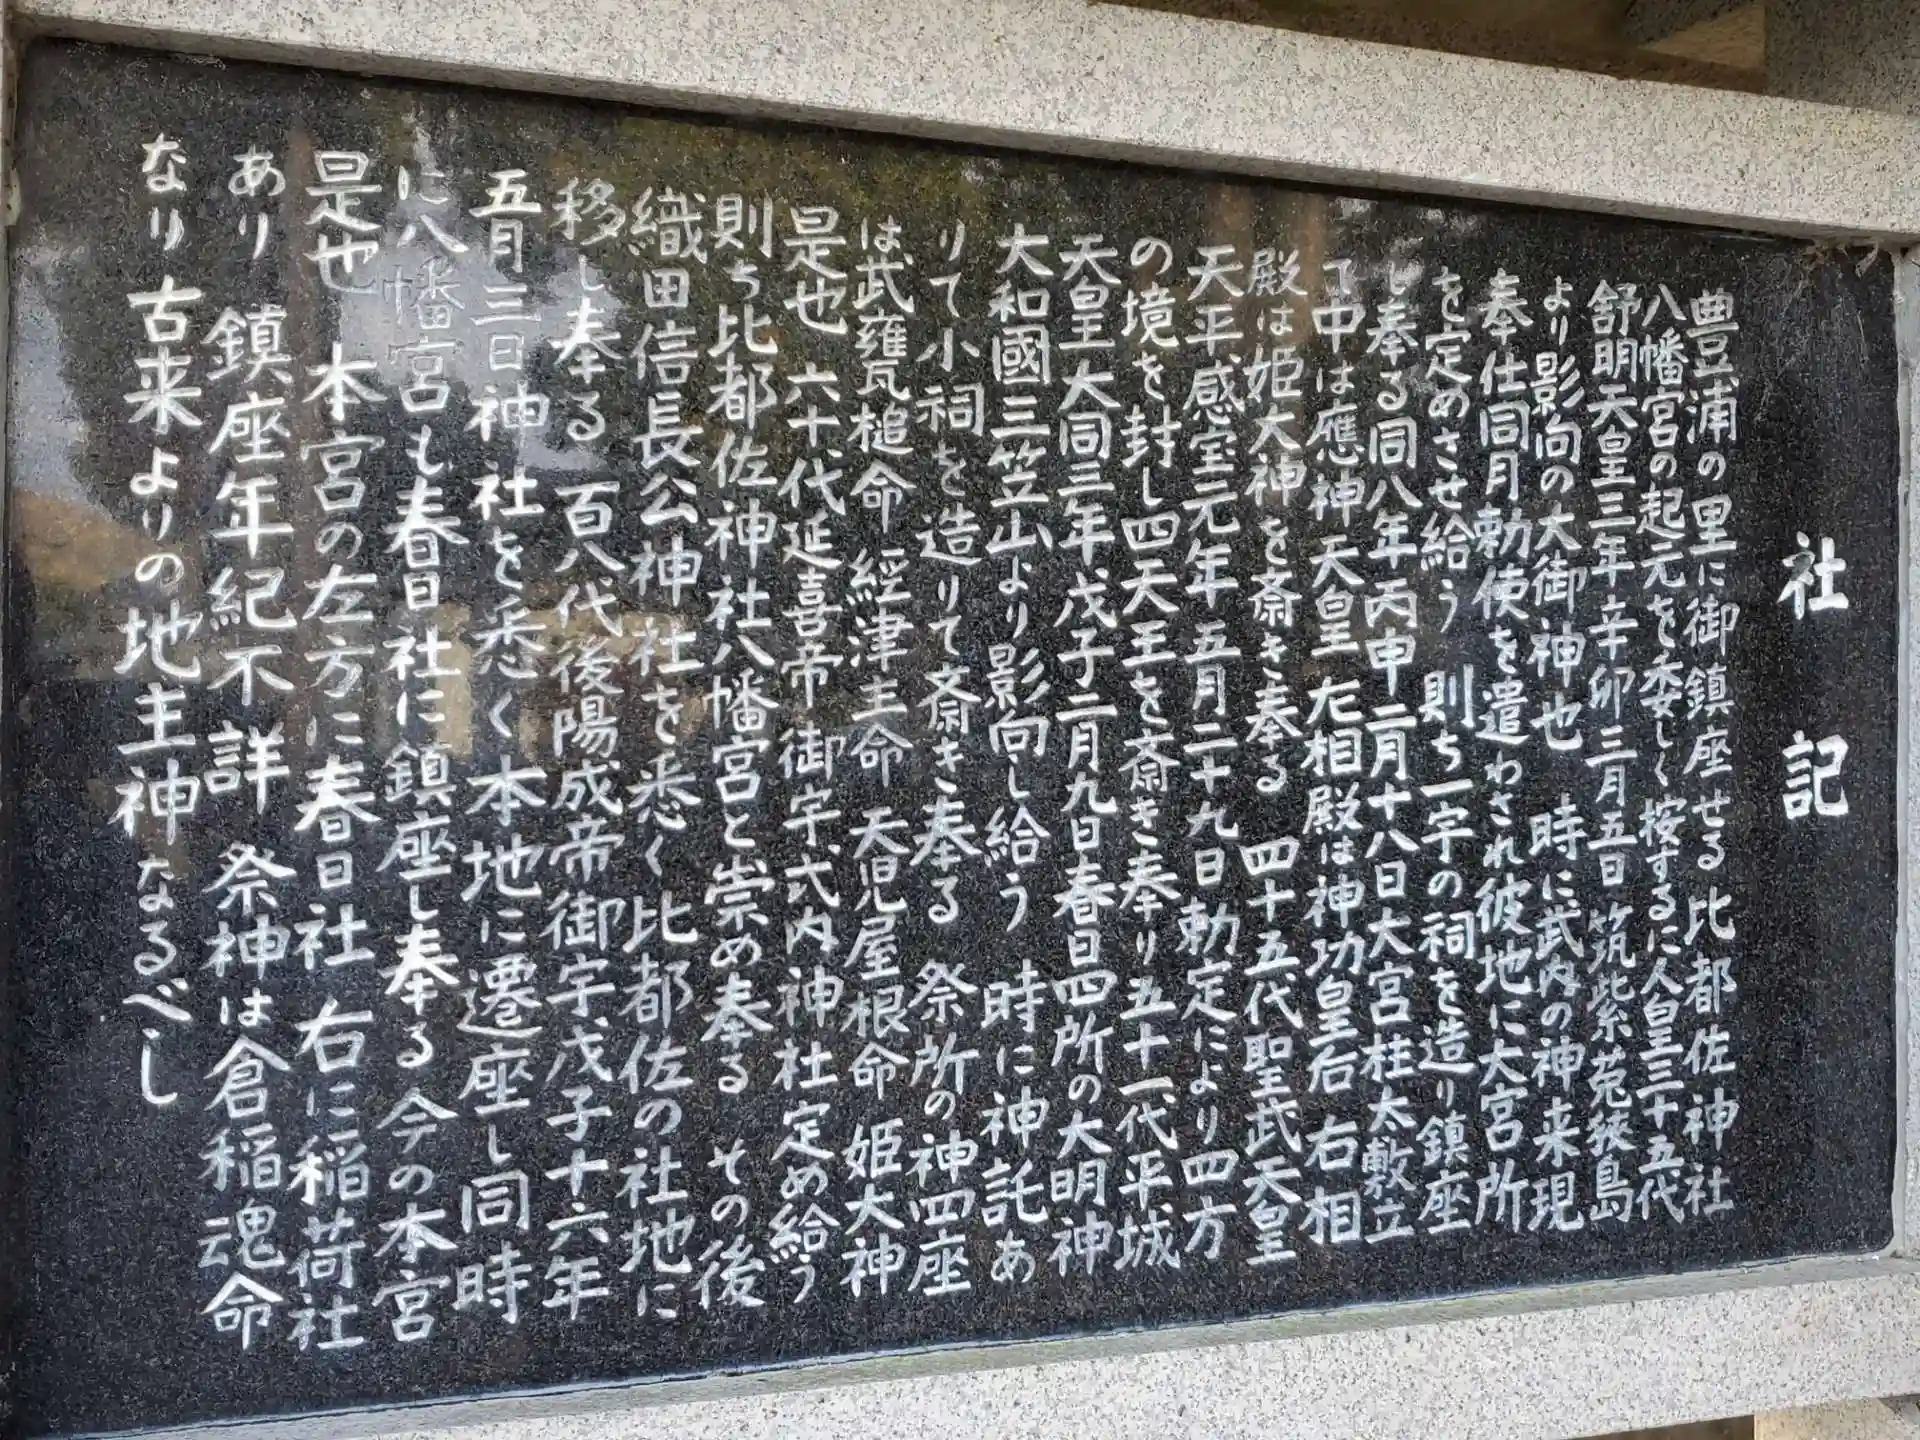 社記
豊浦の里に御鎮座せる比都佐神社
八幡宮の起元を委しく按するに人皇三十五代
舒明天皇三年辛卯三月五日筑紫菟狹島
より影向の大御神也 時に武内の神来現
奉仕同月勅使を遣わされ彼地に大宮所
を定めさせ給う 則ち一宇の祠を造り鎮座
し奉る同八年丙申二月十八日大宮柱太敷立
て中は應神天皇 左相殿は神功皇后 右相
殿は姫大神を斎き奉る 四十五代聖武天皇
天平感宝元年五月二十九日勅定により四方
の境を封し四天王を斎き奉り五十一代平城
天皇大同三年戊子二月九日春日四所の大明神
大和國三笠山より影向し給う 時に神託あ
りて小祠を造りて斎き奉る 祭所の神四座
は武甕槌命 經津主命 天児屋根命 姫大神
是也 六十代延喜帝御宇式内神社定め給う
則ち比都佐神社八幡宮と崇め奉る その後
織田信長公神社を悉く比都佐の社地に
移し奉る 百八代後陽成帝御宇戊子十六年
五月三日神社を悉く本地に遷座し同時
に八幡宮も春日社に鎮座し奉る 今の本宮
是也 本宮の左方に春日社 右に稲荷社
あり 鎮座年紀不詳 祭神は倉稲魂命
なり 古来よりの地主神なるべし